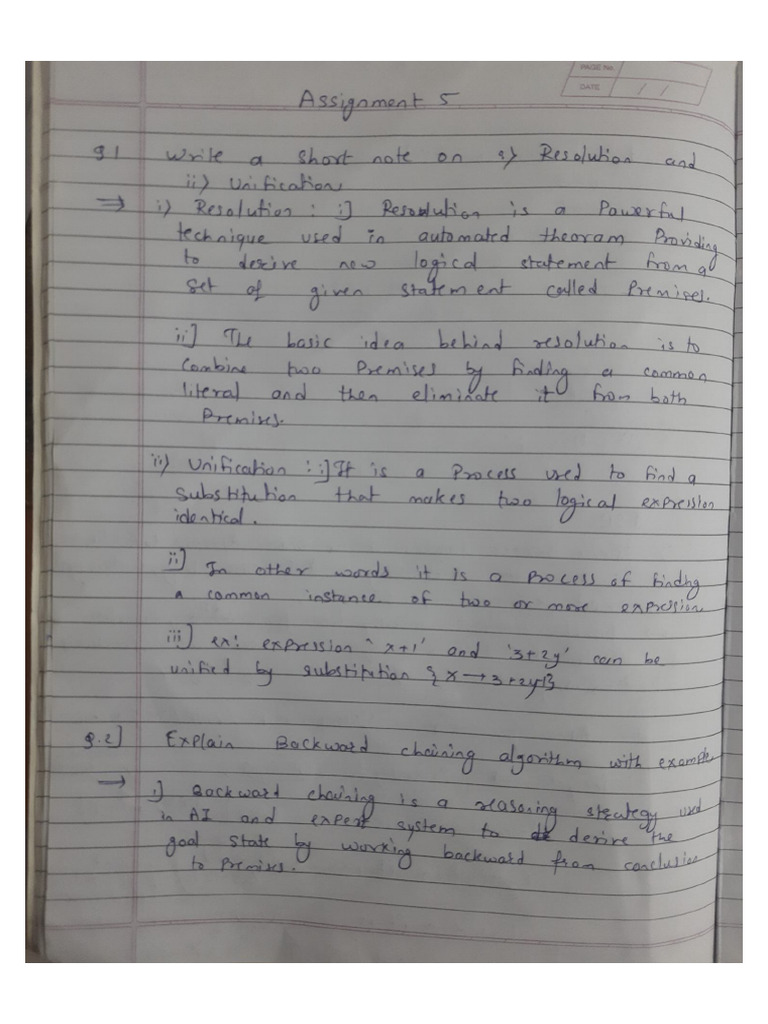 PAGE No.
DATE / /
Assignment 5
Q.1 Write a short note on i) Resolution and
ii) Unification
→ i) Resolution : i] Resolution is a Powerful
technique used in automated theoram Providing
to desire new logical statement from a
set of given statement called Premises.
ii] The basic idea behind resolution is to
combine two Premises by finding a common
literal and then eliminate it from both
Premises.
ii) Unification : i] It is a Process used to find a
substitution that makes two logical expression
identical.
ii] In other words it is a Process of finding
a common instance of two or more expression
iii] ex: expression 'x+1' and '3+2y' can be
unified by substitution {x → 3+2y-1}
Q.2] Explain Backward chaining algorithm with example
→ i] Backward chaining is a reasoning strategy used
in AI and expert system to desire the
goal state by working backward from conclusion
to Premises.